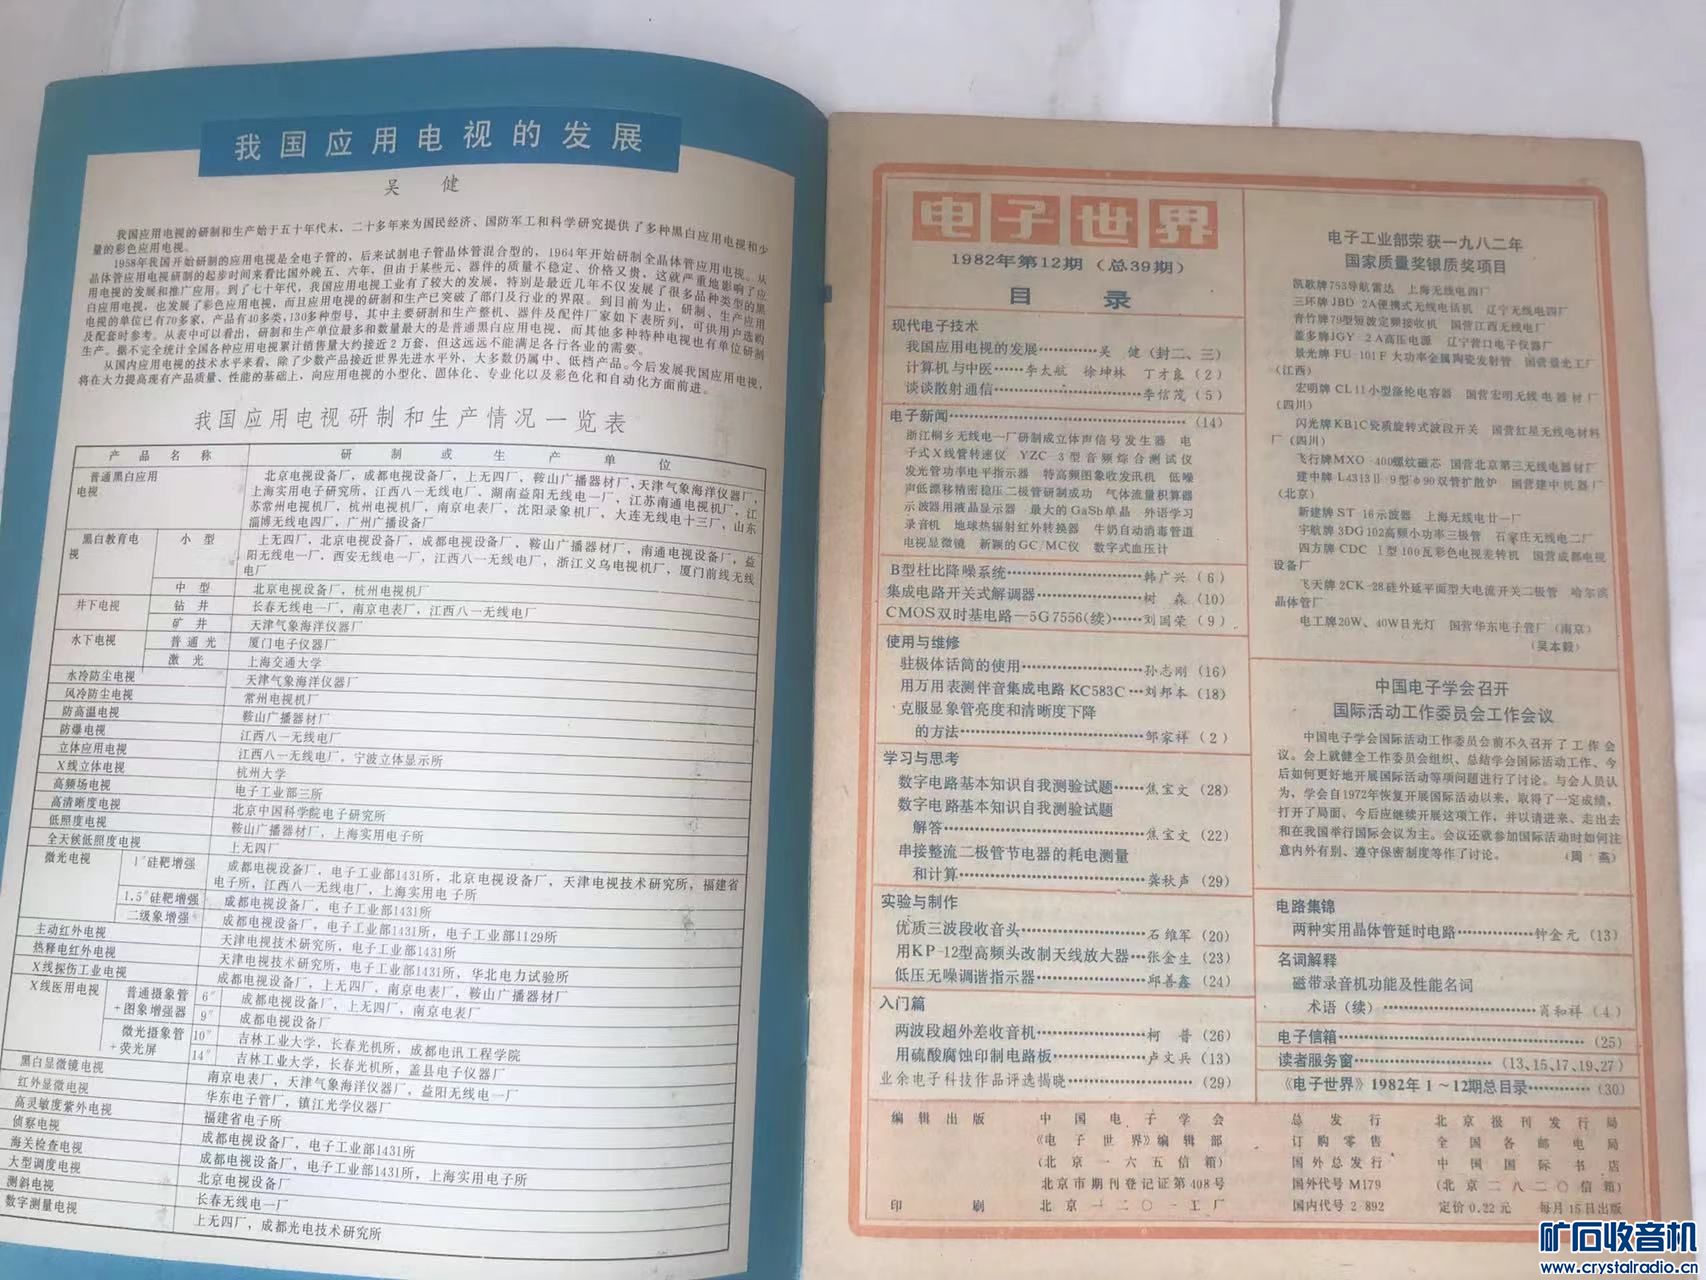 我国应用电视的发展
吴 健
我国应用电视的研制和生产始于五十年代末，二十多年来为国民经济、国防军工和科学研究提供了多种黑白应用电视和少
量的彩色应用电视。
1958年我国开始研制的应用电视是全电子管的，后来试制电子管晶体管混合型的，1964年开始研制全晶体管应用电视。从
晶体管应用电视研制的起步时间来看比国外晚五、六年，但由于某些元、器件的质量不稳定、价格又贵，这就严重地影响了应
用电视的发展和推广应用。到了七十年代，我国应用电视工业有了较大的发展，特别是最近几年不仅发展了很多品种类型的黑
白应用电视，也发展了彩色应用电视，而且应用电视的研制和生产已突破了部门及行业的界限。到目前为止，研制、生产应用
电视的单位已有70多家，产品有40多类，130多种型号，其中主要研制和生产整机、器件及配件厂家如下表所列，可供用户选购
及配套时参考。从表中可以看出，研制和生产单位最多和数量最大的是普通黑白应用电视，而其他多种特种电视也有单位研制
生产。据不完全统计全国各种应用电视累计销售量大约接近2万套，但这远远不能满足各行各业的需要。
从国内应用电视的技术水平来看，除了少数产品接近世界先进水平外，大多数仍属中、低档产品。今后发展我国应用电视，
将在大力提高现有产品质量、性能的基础上，向应用电视的小型化、固体化、专业化以及彩色化和自动化方面前进。
我国应用电视研制和生产情况一览表
产品名称 研制或生产单位
普通黑白应用电视 北京电视设备厂，成都电视设备厂，上无四厂，鞍山广播器材厂，天津气象海洋仪器厂，
上海实用电子研究所，江西八一无线电厂，湖南益阳无线电一厂，江苏南通电视机厂，江
苏常州电视机厂，杭州电视机厂，南京电表厂，沈阳录象机厂，大连无线电十三厂，山东
淄博无线电四厂，广州广播设备厂
黑白教育电视 小型 上无四厂，北京电视设备厂，成都电视设备厂，鞍山广播器材厂，南通电视设备厂，益
阳无线电一厂，西安无线电一厂，江西八一无线电厂，浙江义乌电视机厂，厦门前线无线
电厂
中型 北京电视设备厂，杭州电视机厂
井下电视 钻井 长春无线电一厂，南京电表厂，江西八一无线电厂
矿井 天津气象海洋仪器厂
水下电视 普通光 厦门电子仪器厂
激光 上海交通大学
水冷防尘电视 天津气象海洋仪器厂
风冷防尘电视 常州电视机厂
防高温电视 鞍山广播器材厂
防爆电视 江西八一无线电厂
立体应用电视 江西八一无线电厂，宁波立体显示所
X线立体电视 杭州大学
高频场电视 电子工业部三所
高清晰度电视 北京中国科学院电子研究所
低照度电视 鞍山广播器材厂，上海实用电子所
全天候低照度电视 上无四厂
微光电视 1″硅靶增强 成都电视设备厂，电子工业部1431所，北京电视设备厂，天津电视技术研究所，福建省
电子所，江西八一无线电厂，上海实用电子所
1.5″硅靶增强 成都电视设备厂，电子工业部1431所
二级象增强 成都电视设备厂，电子工业部1431所，电子工业部1129所
主动红外电视 天津电视技术研究所，电子工业部1431所
热释电红外电视 天津电视技术研究所，电子工业部1431所，华北电力试验所
X线探伤工业电视 成都电视设备厂，上无四厂，南京电表厂，鞍山广播器材厂
X线医用电视 普通摄象管+图象增强器 6″ 成都电视设备厂，上无四厂，南京电表厂
9″ 成都电视设备厂
微光摄象管+荧光屏 10″ 吉林工业大学，长春光机所，成都电讯工程学院
14″ 吉林工业大学，长春光机所，盖县电子仪器厂
黑白显微镜电视 南京电表厂，天津气象海洋仪器厂，益阳无线电一厂
红外显微电视 华东电子管厂，镇江光学仪器厂
高灵敏度紫外电视 福建省电子所
侦察电视 成都电视设备厂，电子工业部1431所
海关检查电视 成都电视设备厂，电子工业部1431所，上海实用电子所
大型调度电视 北京电视设备厂
测斜电视 长春无线电一厂
数字测量电视 上无四厂，成都光电技术研究所
电子世界
1982年第12期（总39期）
目 录
现代电子技术
我国应用电视的发展…………吴 健（封二、三）
计算机与中医……李太航 徐坤林 丁才良（2）
谈谈散射通信……………………李信茂（5）
电子新闻……………………………（14）
浙江桐乡无线电一厂研制成立体声信号发生器 电
子式X线管转速仪 YZC-3型音频综合测试仪
发光管功率电平指示器 特高频图象收发讯机 低噪
声低漂移精密稳压二极管研制成功 气体流量积算器
示波器用液晶显示器 最大的GaSb单晶 外语学习
录音机 地球热辐射红外转换器 牛奶自动消毒管道
电视显微镜 新颖的GC/MC仪 数字式血压计
B型杜比降噪系统………………韩广兴（6）
集成电路开关式解调器…………树 森（10）
CMOS双时基电路—5G7556(续)……刘国荣（9）
使用与维修
驻极体话筒的使用………………孙志刚（16）
用万用表测伴音集成电路KC583C…刘邦本（18）
克服显象管亮度和清晰度下降
的方法……………………………邹家祥（2）
学习与思考
数字电路基本知识自我测验试题……焦宝文（28）
数字电路基本知识自我测验试题
解答………………………………焦宝文（22）
串接整流二极管节电器的耗电测量
和计算……………………………龚秋声（29）
实验与制作
优质三波段收音头………………石维军（20）
用KP-12型高频头改制天线放大器…张金生（23）
低压无噪调谐指示器……………邱善鑫（24）
入门篇
两波段超外差收音机………………柯 普（26）
用硫酸腐蚀印制电路板……………卢文兵（13）
业余电子科技作品评选揭晓…………………（29）
电子工业部荣获一九八二年
国家质量奖银质奖项目
凯歌牌753导航雷达 上海无线电四厂
三环牌JBD-2A便携式无线电话机 辽宁无线电四厂
青竹牌79型短波定频接收机 国营江西无线电厂
盖多牌JGY-2A高压电源 辽宁营口电子仪器厂
景光牌FU-101F大功率金属陶瓷发射管 国营景光工厂
（江西）
宏明牌CL11小型涤纶电容器 国营宏明无线电器材厂
（四川）
闪光牌KB1C瓷质旋转式波段开关 国营红星无线电材料
厂（四川）
飞行牌MXO-400螺纹磁芯 国营北京第三无线电器材厂
建中牌L4313Ⅱ-9型φ90双管扩散炉 国营建中机器厂
（北京）
新建牌ST-16示波器 上海无线电廿一厂
宇航牌3DG102高频小功率三极管 石家庄无线电二厂
四方牌CDC-1型100瓦彩色电视差转机 国营成都电视
设备厂
飞天牌2CK-28硅外延平面型大电流开关二极管 哈尔滨
晶体管厂
电工牌20W、40W日光灯 国营华东电子管厂（南京）
（吴本毅）
中国电子学会召开
国际活动工作委员会工作会议
中国电子学会国际活动工作委员会前不久召开了工作会
议。会上就健全工作委员会组织、总结学会国际活动工作、今
后如何更好地开展国际活动等项问题进行了讨论。与会人员认
为，学会自1972年恢复开展国际活动以来，取得了一定成绩，
打开了局面，今后应继续开展这项工作，并以请进来、走出去
和在我国举行国际会议为主。会议还就参加国际活动时如何注
意内外有别、遵守保密制度等作了讨论。 （周 燕）
电路集锦
两种实用晶体管延时电路…………钟金元（13）
名词解释
磁带录音机功能及性能名词
术语（续）……………………肖和祥（4）
电子信箱……………………………………（25）
读者服务窗……………………（13、15、17、19、27）
《电子世界》1982年1～12期总目录…………（30）
编辑出版 中国电子学会 总发行 北京报刊发行局
《电子世界》编辑部 订购零售 全国各邮电局
（北京一六五信箱） 国外总发行 中国国际书店
北京市期刊登记证第408号 国外代号M179 （北京二八二〇信箱）
印刷 北京一二〇一工厂 国内代号2-892 定价0.22元 每月15日出版
矿石收音机
www.crystalradio.cn